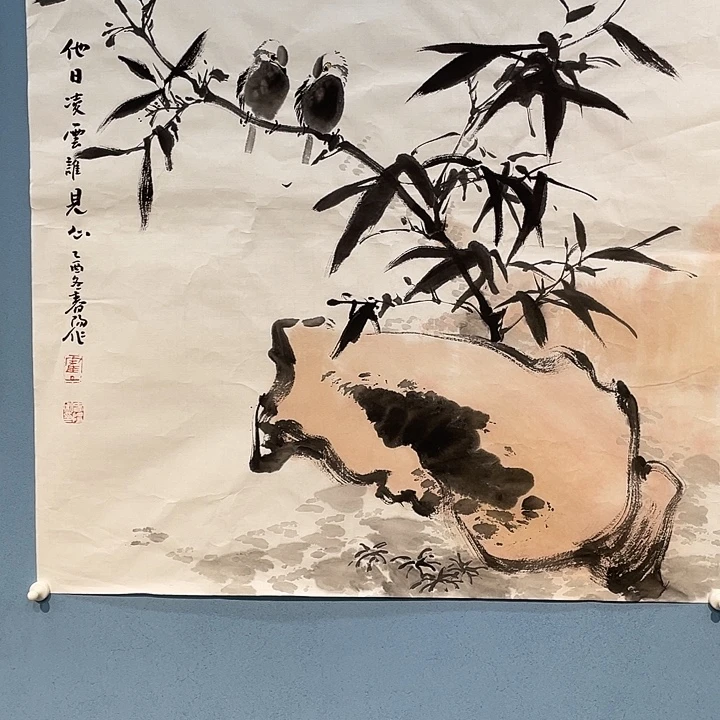 他日凌雲誰見心 乙酉冬春陽作